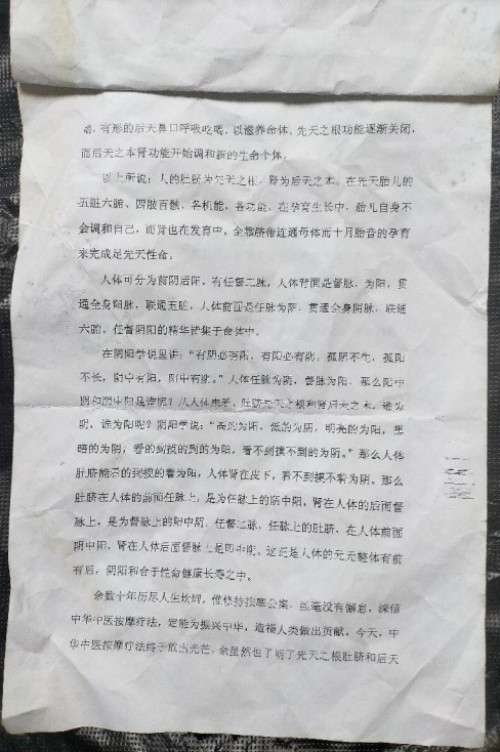 有形的后天鼻口呼吸吃喝，以滋养命体，先天之根功能逐渐关闭，
而后天之本肾功能开始调和新的生命个体。
以上所说：人的肚脐为先天之根，肾为后天之本，在先天胎儿的
五脏六腑、四肢百骸、各机能、各功能，在孕育生长中，胎儿自身不
会调和自己，而肾也在发育中，全靠脐带连通母体而十月胎音的孕育
来完成足先天性命。
人体可分为前阴后阳，有任督二脉，人体背面是督脉，为阳，贯
通全身阳脉，联通五脏，人体前面是任脉为阴，贯通全身阴脉，联通
六腑，任督阴阳的精华皆集于命体中。
在阴阳学说里讲：“有阴必有阳，有阳必有阴，孤阴不生，孤阳
不长，阴中有阳，阳中有阴。”人体任脉为阴，督脉为阳，那么阳中
阴和阴中阳是谁呢？从人体来看，肚脐先天之根和肾后天之本，谁为
阴，谁为阳呢？阴阳学说：“高的为阳，低的为阴，明亮的为阳，黑
暗的为阴，看的到摸的到的为阳，看不到摸不到的为阴。”那么人体
肚脐能看的到摸的着为阳，人体肾在皮下，看不到摸不着为阴，那么
肚脐在人体的前面任脉上，是为任脉上的阴中阳，肾在人体的后面督
脉上，是为督脉上的阳中阴，任督二脉，任脉上的肚脐，在人体前面
阴中阳，肾在人体后面督脉上是阳中阴，这正是人体的元元整体有前
有后，阴阳和合于性命健康长寿之中。
余数十年历尽人生坎坷，惟秘持按摩公案，丝毫没有懈怠，深信
中华中医按摩疗法，定能为振兴中华，造福人类做出贡献，今天，中
华中医按摩疗法终于放出光芒，余虽然也了明了先天之根肚脐和后天